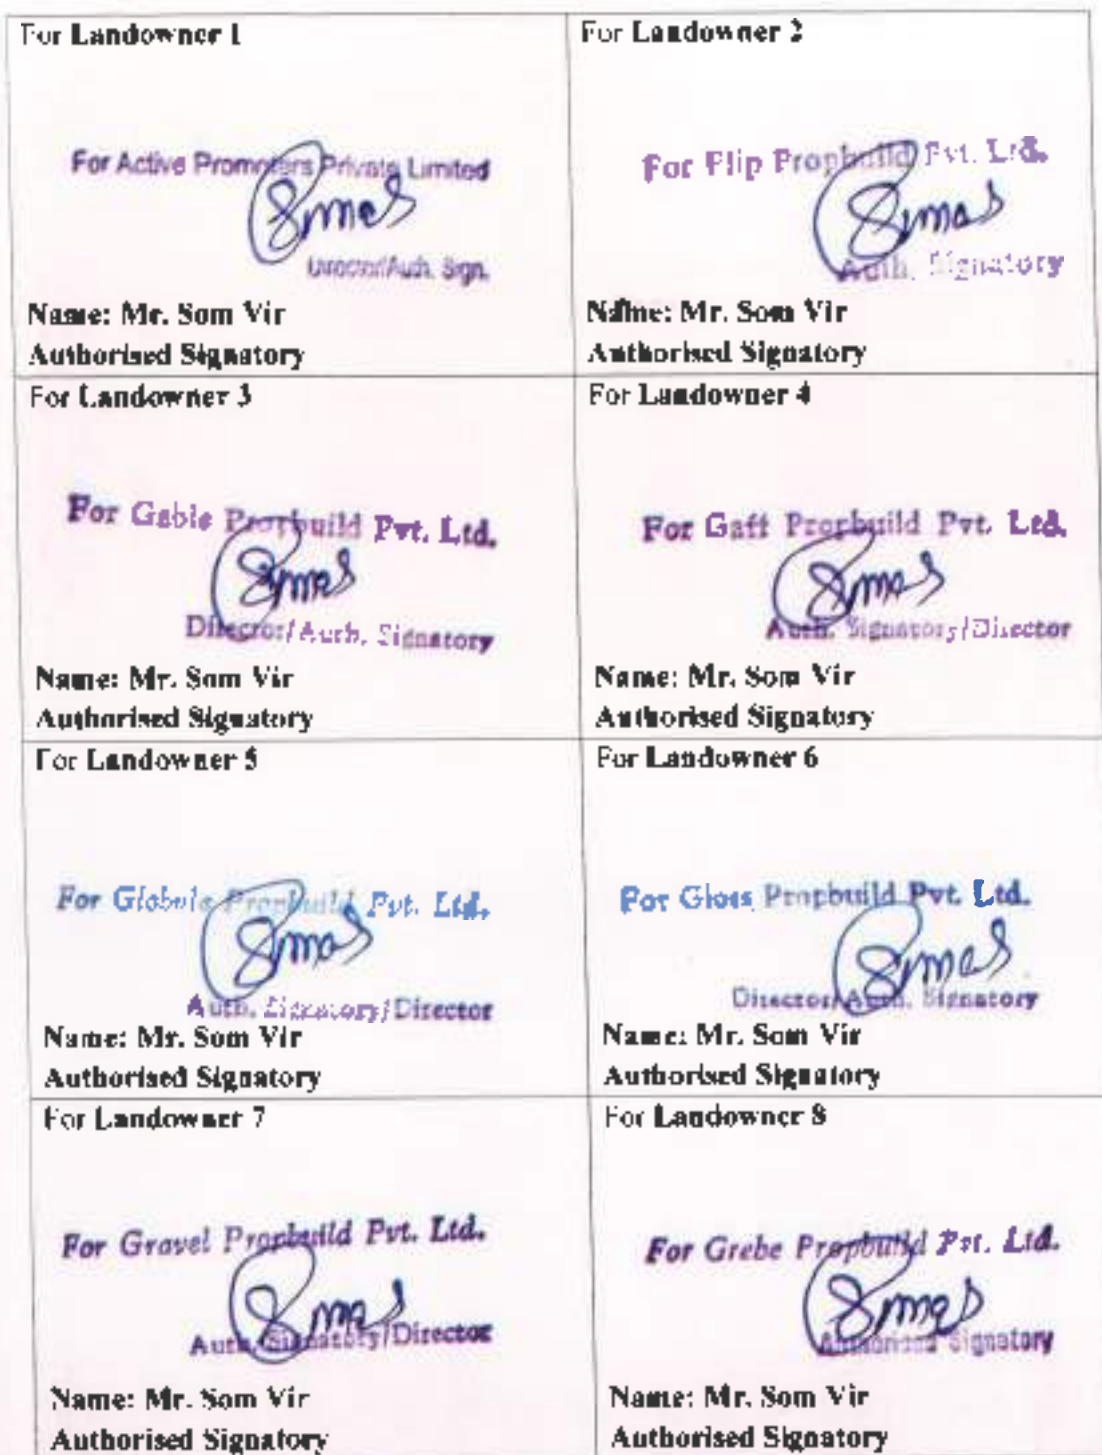 For Landowner 1
For Active Promoters Private Limited
Director/Auth. Sign.
Name: Mr. Som Vir
Authorised Signatory
For Landowner 2
For Flip Propbuild Pvt. Ltd.
Auth. Signatory
Name: Mr. Som Vir
Authorised Signatory
For Landowner 3
For Gable Propbuild Pvt. Ltd.
Director/Auth. Signatory
Name: Mr. Som Vir
Authorised Signatory
For Landowner 4
For Gaff Propbuild Pvt. Ltd.
Auth. Signatory/Director
Name: Mr. Som Vir
Authorised Signatory
For Landowner 5
For Globule Propbuild Pvt. Ltd.
Auth. Signatory/Director
Name: Mr. Som Vir
Authorised Signatory
For Landowner 6
For Gloss Propbuild Pvt. Ltd.
Director/Auth. Signatory
Name: Mr. Som Vir
Authorised Signatory
For Landowner 7
For Gravel Propbuild Pvt. Ltd.
Auth. Signatory/Director
Name: Mr. Som Vir
Authorised Signatory
For Landowner 8
For Grebe Propbuild Pvt. Ltd.
Authorised Signatory
Name: Mr. Som Vir
Authorised Signatory